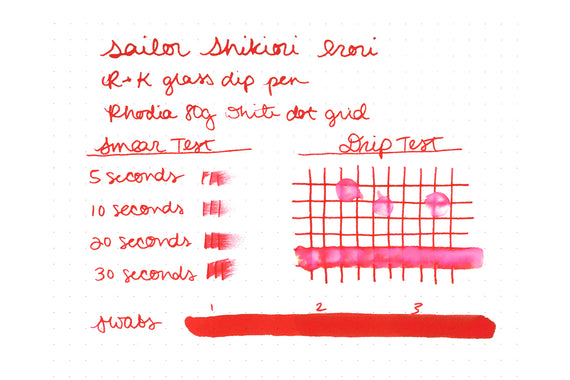 Sailor Shikiori Irori
R+K glass dip pen
Rhodia 80g white dot grid
Smear Test
Drip Test
5 seconds
10 seconds
20 seconds
30 seconds
1 2 3
swabs